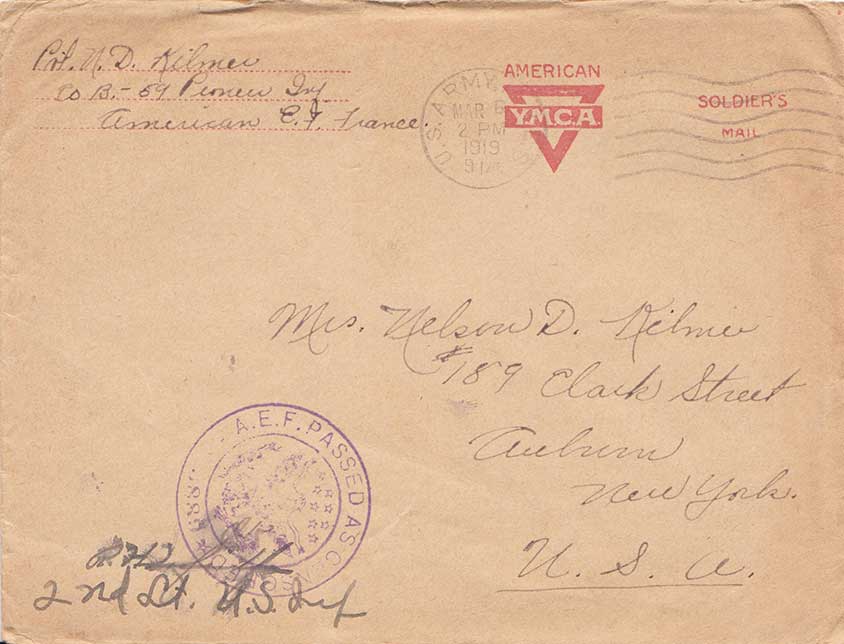 Pvt. N. D. Kilmer
Co B. - 59 Pioneer Inf
American E. F. France.
U.S. ARMY
MAR 6
2 PM
1919
AMERICAN
Y.M.C.A.
SOLDIER'S
MAIL
Mrs. Nelson D. Kilmer
#189 Clark Street
Auburn
New York.
U. S. A.
A.E.F. PASSED AS CENSORED
2nd Lt. U.S. Inf